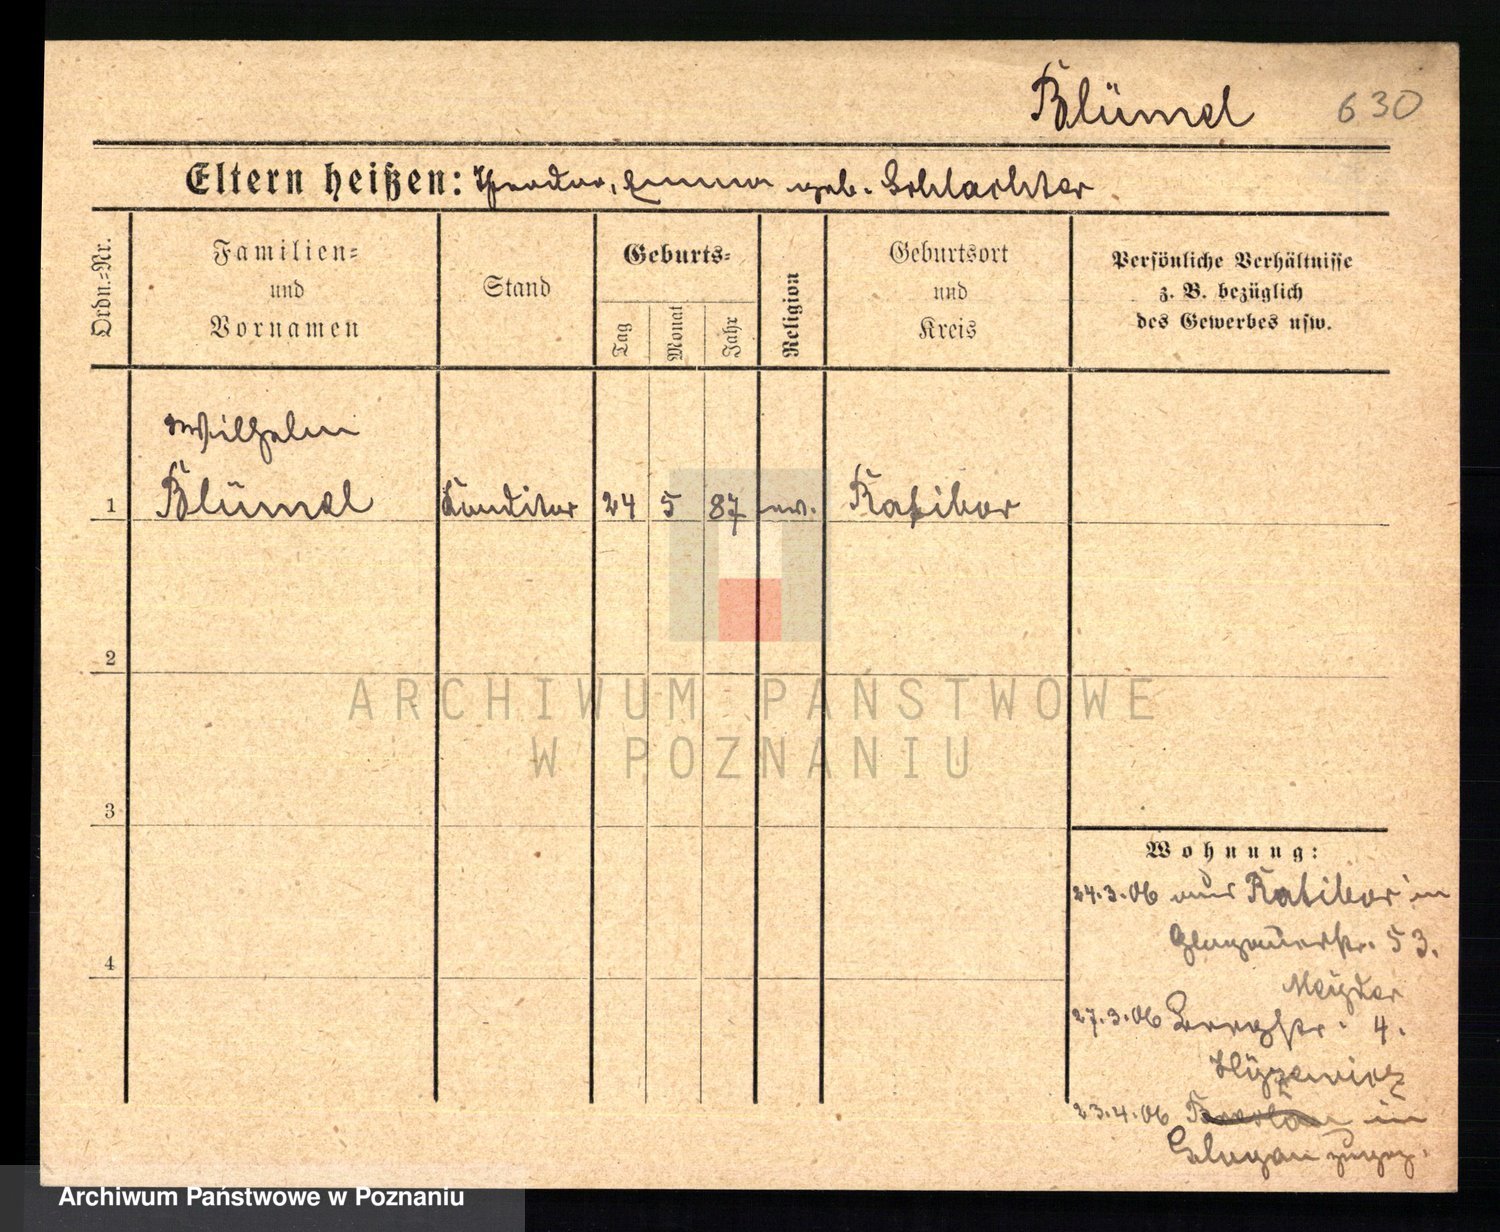 Blümel 630
Eltern heißen: Theodor, Emma geb. Schlachter
Ordn.=Nr.
Familien=
und
Vornamen
Stand
Geburts=
Tag
Monat
Jahr
Religion
Geburtsort
und
Kreis
Persönliche Verhältnisse
z. B. bezüglich
des Gewerbes usw.
Wilhelm
1 Blümel Konditor 24 5 87 ev. Ratibor
2
3
4
ARCHIWUM PAŃSTWOWE
W POZNANIU
Wohnung:
24.3.06 aus Ratibor in
Glogauerstr. 53.
27.3.06 Bergstr. 4.
23.4.06 Breslau in
Glogau zugez.
Archiwum Państwowe w Poznaniu